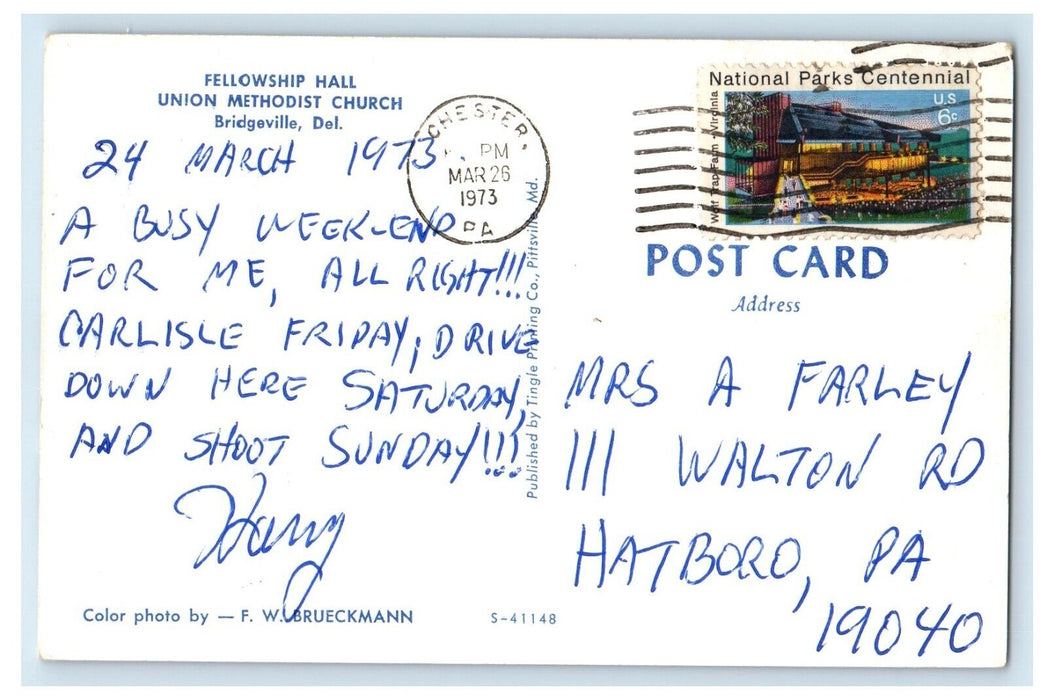 FELLOWSHIP HALL
UNION METHODIST CHURCH
Bridgeville, Del.
24 MARCH 1973
A BUSY WEEK-END
FOR ME, ALL RIGHT!!!
CARLISLE FRIDAY, DRIVE
DOWN HERE SATURDAY,
AND SHOOT SUNDAY!!!
Harry
Color photo by — F. W. BRUECKMANN
S-41148
Published by Tingle Printing Co., Pittsville, Md.
CHESTER,
PM
MAR 26
1973
PA
National Parks Centennial
U.S.
6c
Wolf Trap Farm, Virginia
POST CARD
Address
MRS A FARLEY
111 WALTON RD
HATBORO, PA
19040